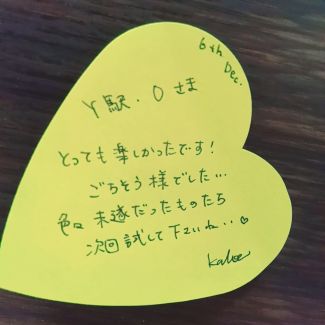 6th
Dec.
Y駅・Oさま
とっても楽しかったです!
ごちそう様でした…
色々未遂だったものたち
次回試して下さいね‥♡